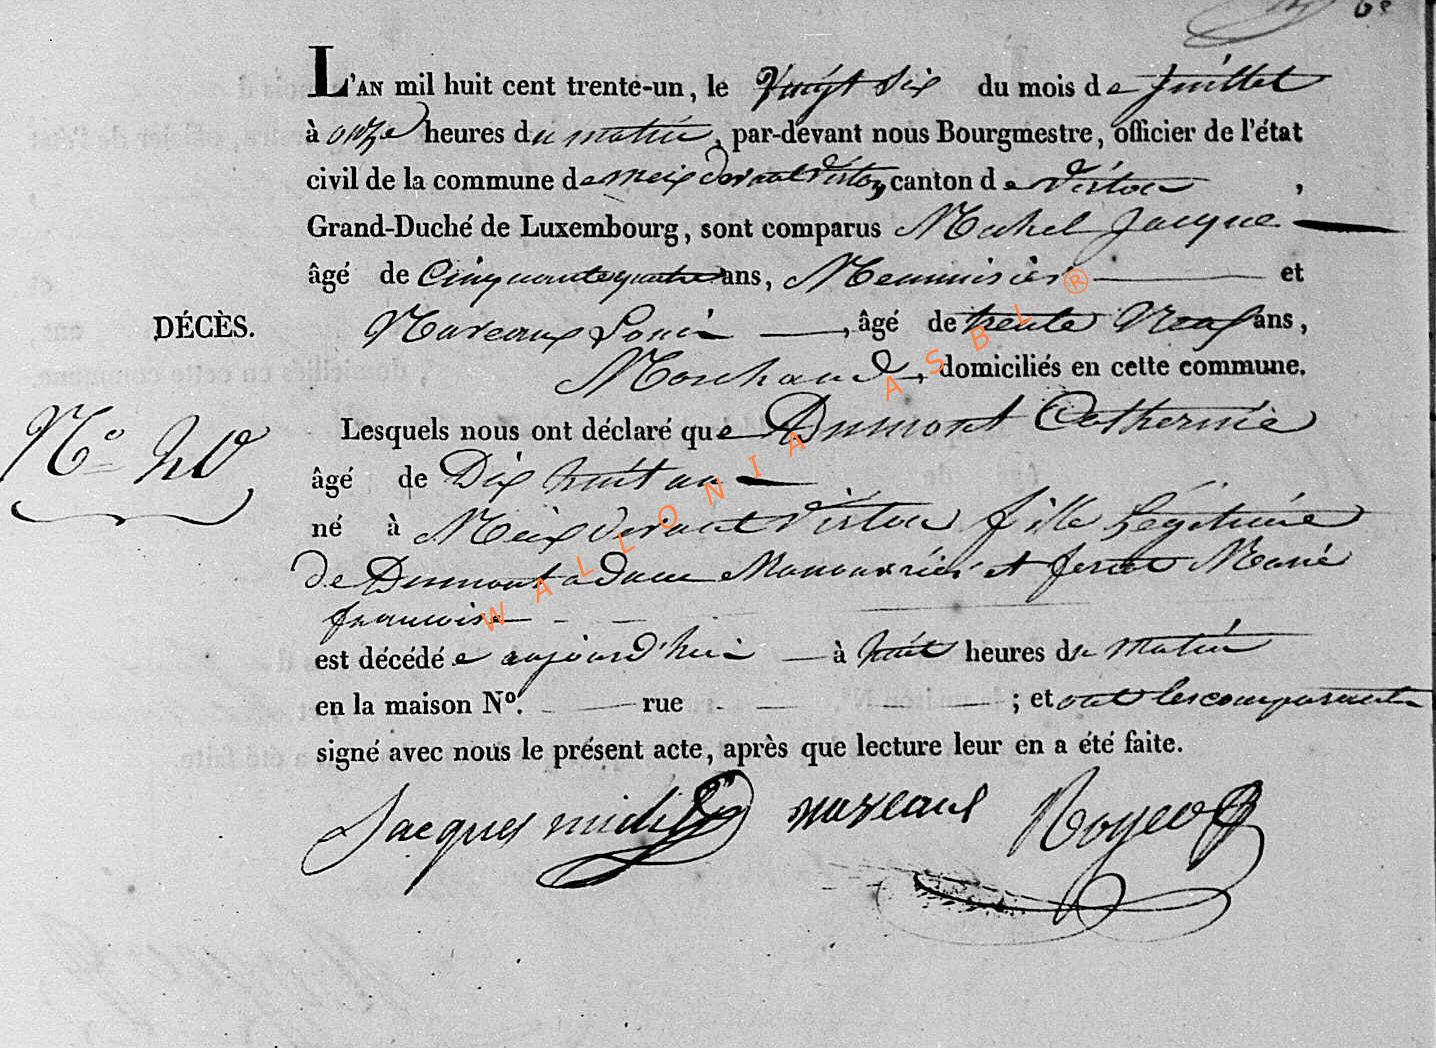 6e
L'AN mil huit cent trente-un, le Vingt Six du mois de Juillet
à onze heures du matin, par-devant nous Bourgmestre, officier de l'état
civil de la commune de meix devant Virton, canton de Virton,
Grand-Duché de Luxembourg, sont comparus Michel Jacque
âgé de Cinquante quatre ans, Menuisier et
DÉCÈS. Mareaux Louis, âgé de trente Neuf ans,
Marchand, domiciliés en cette commune.
Lesquels nous ont déclaré que Dumont Catherine
âgé de Dix huit an
né à Meix devant Virton fille Légitime
de Dumont adam Manouvrier et Marie
francoise
est décédée aujourd'hui à huit heures du Matin
en la maison No. rue ; et ont les comparants
signé avec nous le présent acte, après que lecture leur en a été faite.
Jacques michel mareaux
WALLONIA ASBL ®